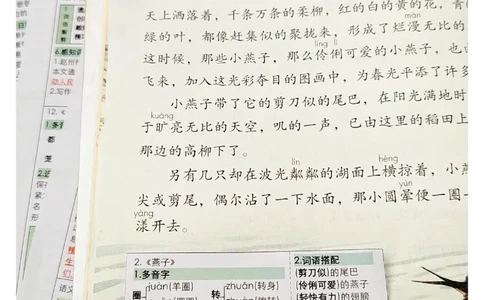 天上洒落着，千条万条的柔柳，红的白的黄的花，青的
màn
绿的叶，都像赶集似的聚拢来，形成了烂漫无比的
líng lì
这时候，那些小燕子，那么伶俐可爱的小燕子，也由
飞来，加入这光彩夺目的图画中，为春光平添了许多
小燕子带了它的剪刀似的尾巴，在阳光满地时
kuàng
于旷亮无比的天空，叽的一声，已由这里的稻田上
那边的高柳下了。
lín
héng
另有几只却在波光粼粼的湖面上横掠着，小燕
yùn
尖或剪尾，偶尔沾了一下水面，那小圆晕便一圈一
yàng
漾开去。
2.《燕子》
1.多音字
圈
juàn(羊圈)
转
zhuǎn(转身)
2.词语搭配
(剪刀似)的尾巴
(伶俐可爱)的燕子
(轻快有力)的翅膀
6.感知
1.赵州
本文通
动人民
2.写作
12.《
1.多音
都
笼
紧
名
形
语文